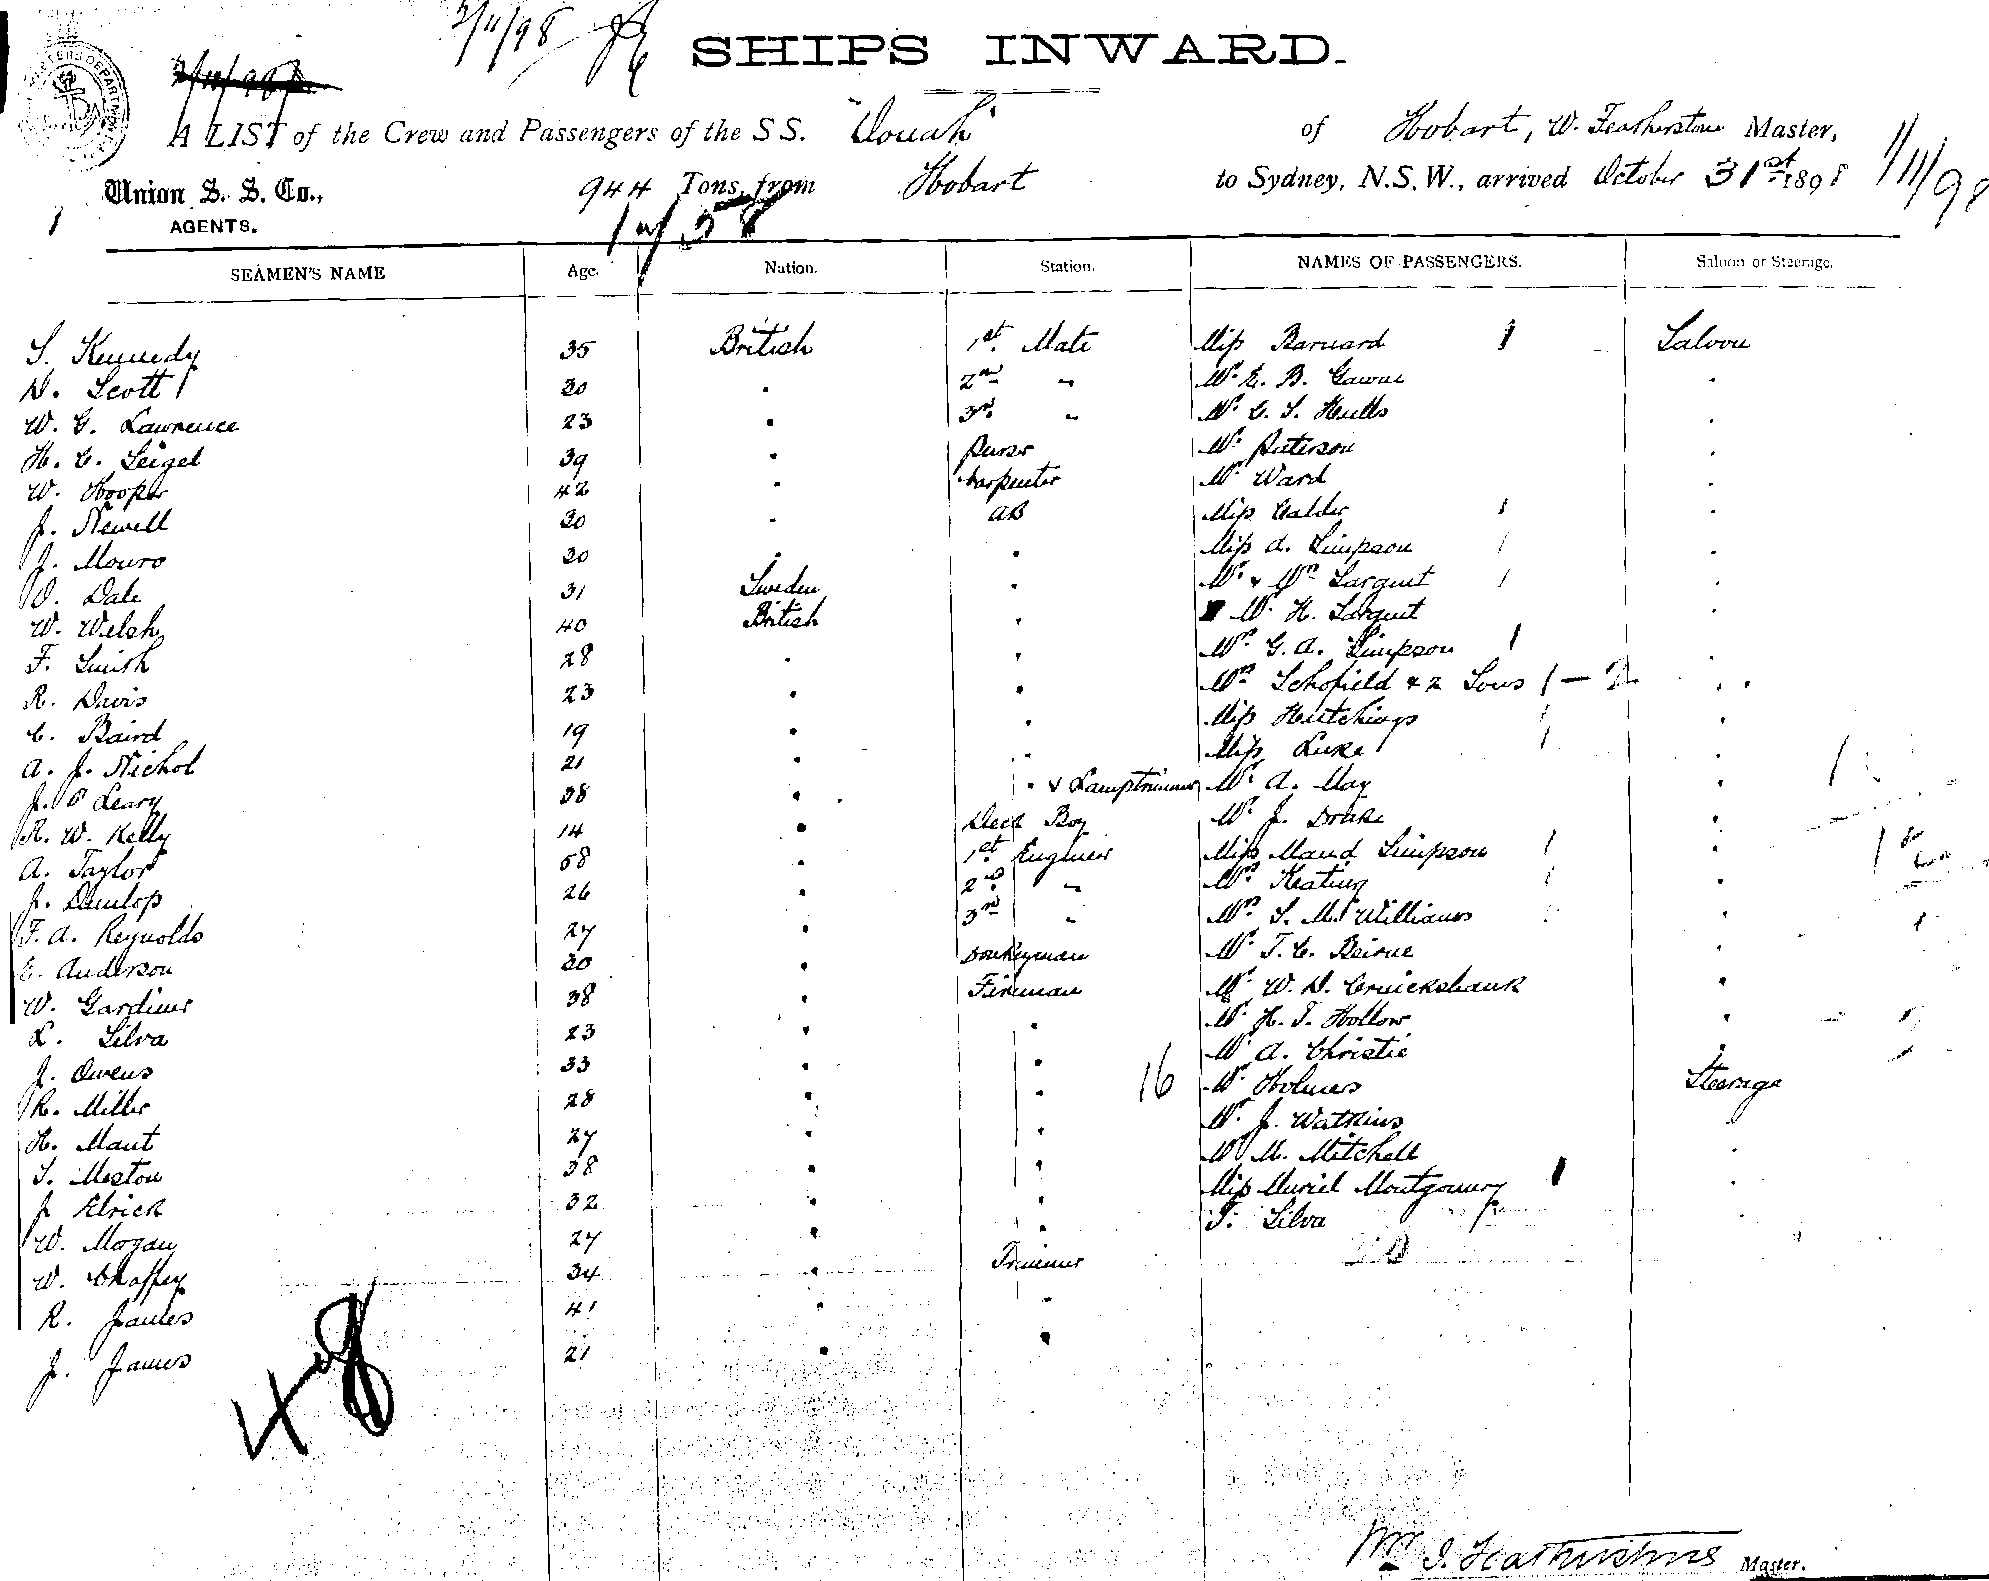 2/11/98
SHIPS INWARD.
A LIST of the Crew and Passengers of the S S. "Oonah" of Hobart, W. Featherstone Master,
Union S. S. Co., 944 Tons, from Hobart to Sydney, N.S.W., arrived October 31st 1898 1/11/98
AGENTS.
SEAMEN'S NAME Age. Nation. Station. NAMES OF PASSENGERS. Saloon or Steerage.
S. Kennedy 35 British 1st. Mate Miss Barnard 1 Saloon
N. Scott 30 " 2nd " Mr. E. B. Gawne "
W. G. Lawrence 23 " 3rd " Mr. C. S. Hulls "
H. C. Seigel 39 " Purser Mr. Paterson "
W. Hooper 42 " Carpenter Mr Ward "
J. Newell 30 " AB Miss Calder 1 "
J. Mouro 20 " " Miss A. Simpson 1 "
O. Dale 31 Sweden " Mr. & Mrs. Sargent 1 "
W. Welsh 40 British " Mr. H. Sargent "
F. Smith 28 " " Mrs. G. A. Simpson 1 "
R. Davis 23 " " Mrs Schofield & 2 Sons 1 — 2 " "
C. Baird 19 " " Miss Hutchings 1 "
A. J. Nichol 21 " " Miss Luke 1 "
J. O'Leary 38 " " & Lamptrimmer Mr. A. May "
R. W. Kelly 14 " Deck Boy Mr. J. Drake "
A. Taylor 58 " 1st. Engineer Miss Maud Simpson 1 "
J. Dunlop 26 " 2nd " Mrs Keating 1 "
F. A. Reynolds 27 " 3rd " Mrs. S. McWilliams "
E. Anderson 30 " Donkeyman Mr. T. C. Beirne "
W. Gardiner 38 " Fireman Mr. W. D. Cruickshank "
L. Silva 23 " " Mr. H. T. Hollow "
J. Owens 33 " " Mr A. Christie "
R. Miller 28 " " 16 Mr. Holmes Steerage
H. Mant 27 " " Mr. J. Watkins "
S. Meston 38 " " Mr M. Mitchell "
J Elrick 32 " " Miss Muriel Montgomery 1 "
W. Morgan 27 " " T. Silva "
W. Chaffey 34 " Trimmer
R. James 41 " "
J. James 21 " "
Master.